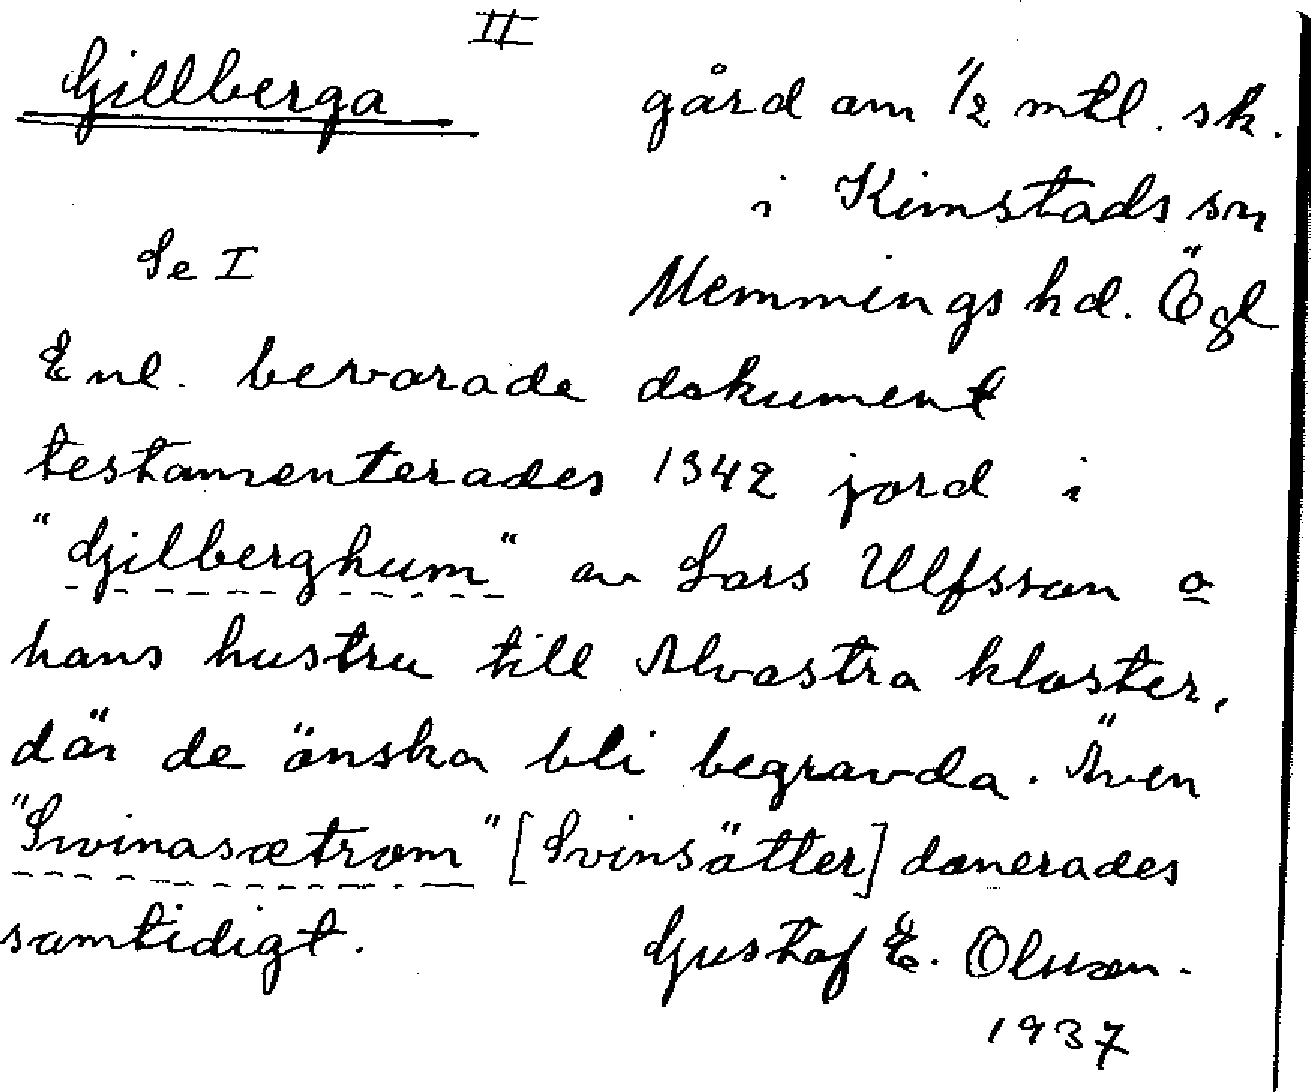 II
Gillberga
gård om 1/2 mtl. sk.
i Kimstads sn
Se I
Memmings hd. Ögl
Enl. bevarade dokument
testamenterades 1342 jord i
"Gilberghum" av Lars Ulfsson o
hans hustru till Alvastra kloster,
där de önska bli begravda. Även
"Swinasætrom" [Svinsätter] donerades
samtidigt.
Gustaf E. Olsson.
1937